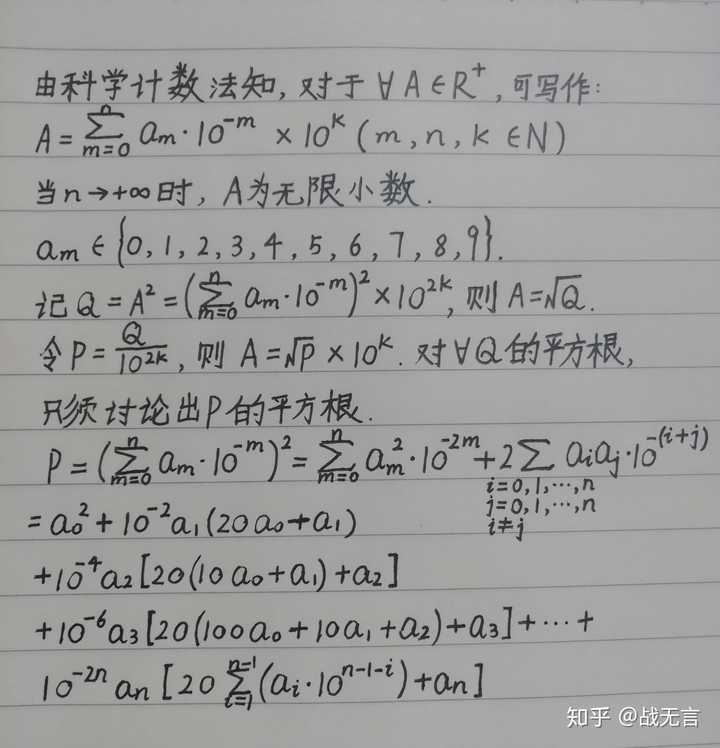 由科学计数法知, 对于 ∀A∈R⁺, 可写作:
A = ∑_{m=0}^{n} aₘ·10^{-m} × 10^k (m, n, k ∈N)
当n→+∞时, A为无限小数.
aₘ ∈ {0, 1, 2, 3, 4, 5, 6, 7, 8, 9}.
记 Q = A² = (∑_{m=0}^{n} aₘ·10^{-m})² × 10^{2k}, 则 A=√Q.
令 P = Q/10^{2k}, 则 A = √P × 10^k. 对∀Q的平方根,
只须讨论出P的平方根.
P = (∑_{m=0}^{n} aₘ·10^{-m})² = ∑_{m=0}^{n} aₘ²·10^{-2m} + 2∑_{i=0,1,⋯,n j=0,1,⋯,n i≠j} aᵢaⱼ·10^{-(i+j)}
= a₀² + 10^{-2}a₁(20a₀+a₁)
+10^{-4}a₂[20(10a₀+a₁)+a₂]
+10^{-6}a₃[20(100a₀+10a₁+a₂)+a₃]+⋯+
10^{-2n}aₙ[20∑_{i=1}^{n=1}(aᵢ·10^{n-1-i})+aₙ]
知乎 @战无言